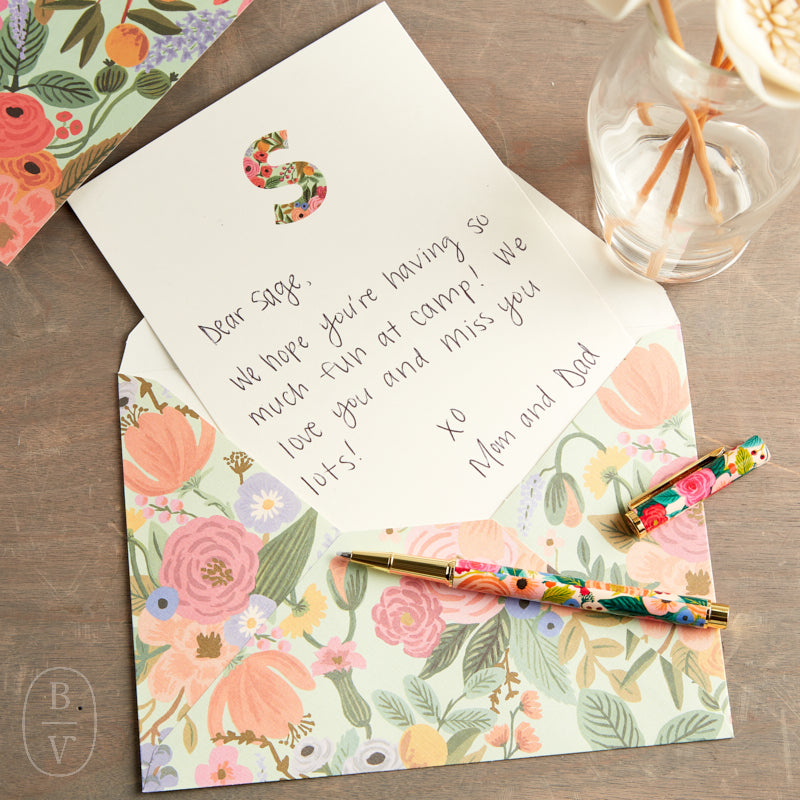 S
Dear Sage,
We hope you're having so
much fun at camp! We
love you and miss you
lots!
xo
Mom and Dad
B
V